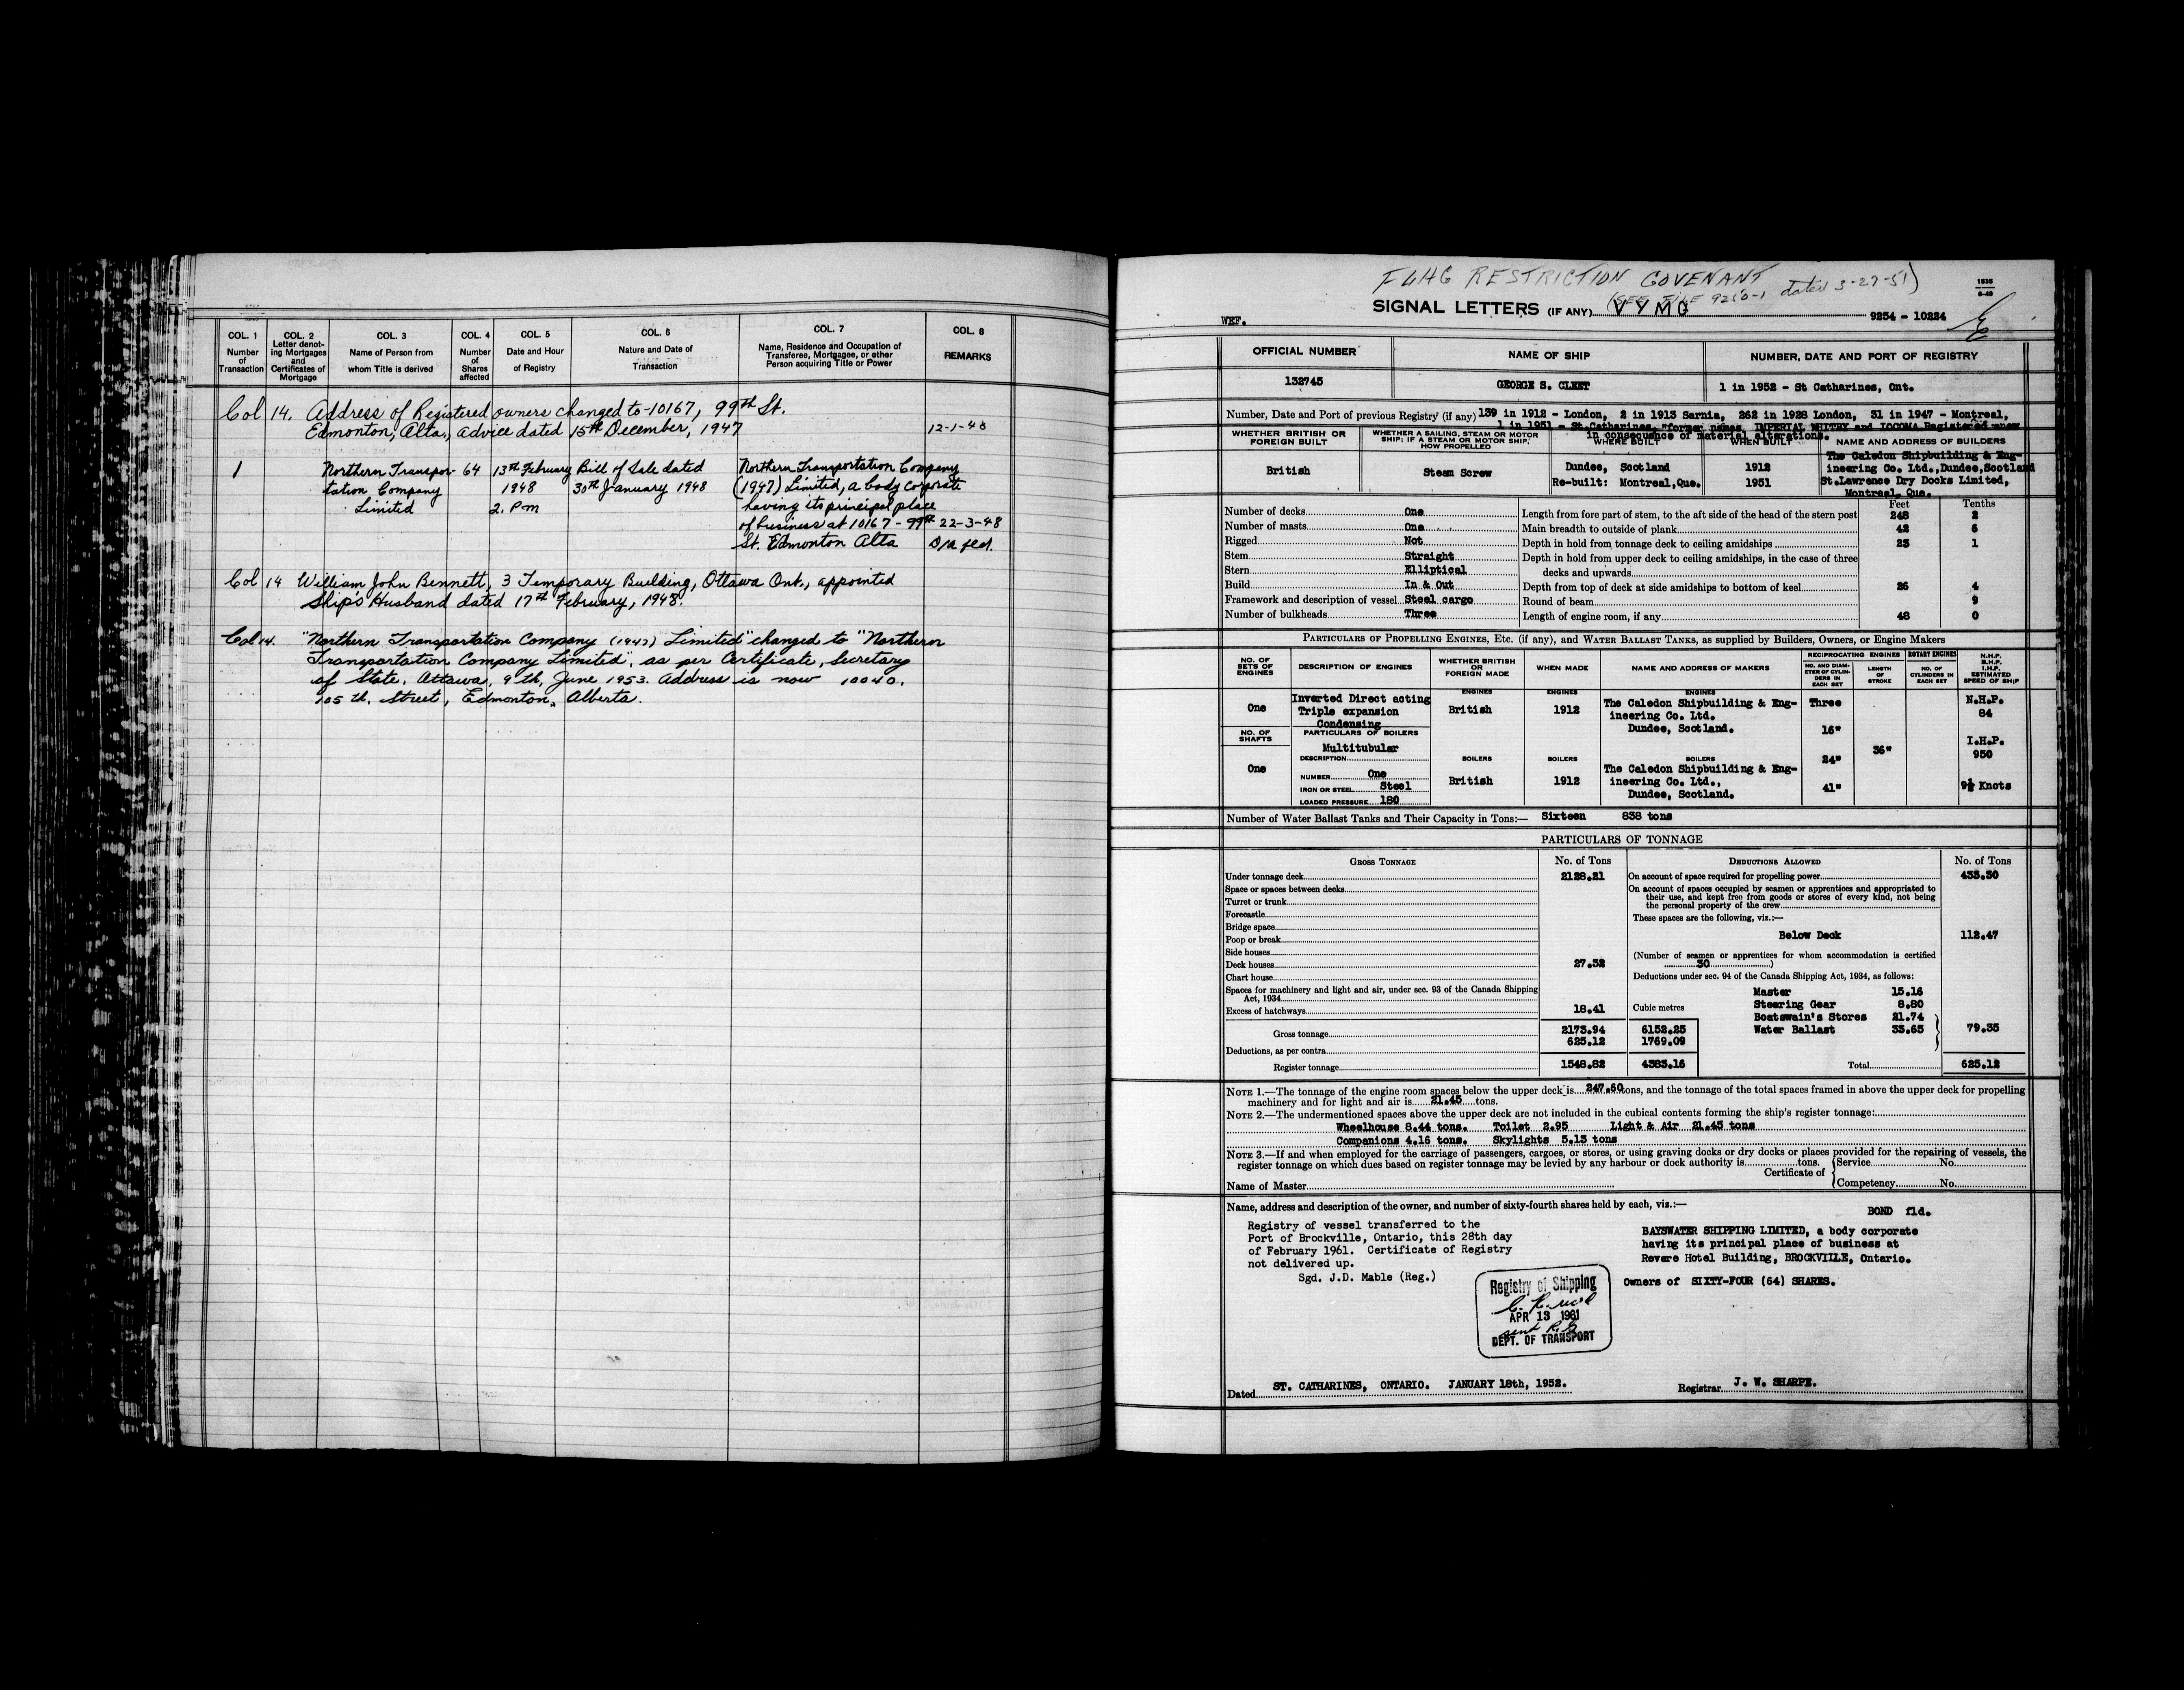 COL. 1 COL. 2 COL. 3 COL. 4 COL. 5 COL. 6 COL. 7 COL. 8
Number of Transaction
Letter denoting Mortgages and Certificates of Mortgage
Name of Person from whom Title is derived
Number of Shares affected
Date and Hour of Registry
Nature and Date of Transaction
Name, Residence and Occupation of Transferee, Mortgagee, or other Person acquiring Title or Power
REMARKS
Col 14. Address of Registered owners changed to-10167, 99th St.
Edmonton, Alta., advice dated 15th December, 1947 12-1-48
1 Northern Transpor- 64 13th February Bill of Sale dated Northern Transportation Company
tation Company 1948 30th January 1948 (1947) Limited, a body corporate
Limited 2. Pm having its principal place
of business at 10167 - 99th 22-3-48
St. Edmonton Alta D/a fld.
Col 14 William John Bennett, 3 Temporary Building, Ottawa Ont., appointed
Ship's Husband dated 17th February, 1948.
Col 14. "Northern Transportation Company (1947) Limited" changed to "Northern
Transportation Company Limited", as per Certificate, Secretary
of State, Ottawa, 9th, June 1953. Address is now 10040.
105 th. Street, Edmonton, Alberta.
FLAG RESTRICTION COVENANT
(SEE FILE 9250-1 dated 3-27-51)
SIGNAL LETTERS (IF ANY) VYMG
WEF. 9254 - 10224
OFFICIAL NUMBER NAME OF SHIP NUMBER, DATE AND PORT OF REGISTRY
132745 GEORGE S. CLEET 1 in 1952 - St Catharines, Ont.
Number, Date and Port of previous Registry (if any) 139 in 1912 - London, 2 in 1913 Sarnia, 262 in 1928 London, 31 in 1947 - Montreal,
1 in 1951 - St.Catharines, "former names, IMPERIAL WHITBY and IOCOMA Registered anew
in consequence of material alterations.
WHETHER BRITISH OR FOREIGN BUILT
WHETHER A SAILING, STEAM OR MOTOR SHIP; IF A STEAM OR MOTOR SHIP, HOW PROPELLED
WHERE BUILT WHEN BUILT NAME AND ADDRESS OF BUILDERS
British Steam Screw
Dundee, Scotland 1912 The Caledon Shipbuilding & Eng-
ineering Co. Ltd.,Dundee,Scotland
Re-built: Montreal,Que. 1951 St.Lawrence Dry Docks Limited,
Montreal, Que.
Feet Tenths
Number of decks One Length from fore part of stem, to the aft side of the head of the stern post 248 2
Number of masts One Main breadth to outside of plank 42 6
Rigged Not Depth in hold from tonnage deck to ceiling amidships 23 1
Stem Straight Depth in hold from upper deck to ceiling amidships, in the case of three
Stern Elliptical decks and upwards
Build In & Out Depth from top of deck at side amidships to bottom of keel 26 4
Framework and description of vessel Steel cargo Round of beam 9
Number of bulkheads Three Length of engine room, if any 48 0
PARTICULARS OF PROPELLING ENGINES, ETC. (if any), and WATER BALLAST TANKS, as supplied by Builders, Owners, or Engine Makers
NO. OF SETS OF ENGINES
DESCRIPTION OF ENGINES
WHETHER BRITISH OR FOREIGN MADE
WHEN MADE
NAME AND ADDRESS OF MAKERS
RECIPROCATING ENGINES ROTARY ENGINES
NO. AND DIAMETER OF CYLINDERS IN EACH SET
LENGTH OF STROKE
NO. OF CYLINDERS IN EACH SET
N.H.P. B.H.P. I.H.P. ESTIMATED SPEED OF SHIP
ENGINES ENGINES ENGINES
One Inverted Direct acting British 1912 The Caledon Shipbuilding & Eng- Three N.H.P.
Triple expansion ineering Co. Ltd. 84
Condensing Dundee, Scotland. 16"
NO. OF SHAFTS PARTICULARS OF BOILERS I.H.P.
Multitubular 36" 950
DESCRIPTION BOILERS BOILERS BOILERS 24"
One NUMBER One British 1912 The Caledon Shipbuilding & Eng-
IRON OR STEEL Steel ineering Co. Ltd., 41" 9½ Knots
LOADED PRESSURE 180 Dundee, Scotland.
Number of Water Ballast Tanks and Their Capacity in Tons:— Sixteen 838 tons
PARTICULARS OF TONNAGE
GROSS TONNAGE No. of Tons DEDUCTIONS ALLOWED No. of Tons
Under tonnage deck 2128.21 On account of space required for propelling power 433.30
Space or spaces between decks On account of spaces occupied by seamen or apprentices and appropriated to
Turret or trunk their use, and kept free from goods or stores of every kind, not being
Forecastle the personal property of the crew
Bridge space These spaces are the following, viz.:—
Poop or break Below Deck 112.47
Side houses (Number of seamen or apprentices for whom accommodation is certified
Deck houses 27.32 30)
Chart house Deductions under sec. 94 of the Canada Shipping Act, 1934, as follows:
Spaces for machinery and light and air, under sec. 93 of the Canada Shipping Master 15.16
Act, 1934 Steering Gear 8.80
Excess of hatchways 18.41 Cubic metres Boatswain's Stores 21.74
Gross tonnage 2173.94 6152.25 Water Ballast 33.65 79.35
Deductions, as per contra 625.12 1769.09
Register tonnage 1548.82 4383.16 Total 625.12
NOTE 1.—The tonnage of the engine room spaces below the upper deck is 247.60 tons, and the tonnage of the total spaces framed in above the upper deck for propelling
machinery and for light and air is 21.45 tons.
NOTE 2.—The undermentioned spaces above the upper deck are not included in the cubical contents forming the ship's register tonnage:
Wheelhouse 8.44 tons. Toilet 2.95 Light & Air 21.45 tons
Companions 4.16 tons. Skylights 5.13 tons
NOTE 3.—If and when employed for the carriage of passengers, cargoes, or stores, or using graving docks or dry docks or places provided for the repairing of vessels, the
register tonnage on which dues based on register tonnage may be levied by any harbour or dock authority is tons.
Certificate of Service No.
Name of Master Competency No.
Name, address and description of the owner, and number of sixty-fourth shares held by each, viz.:—
BOND fld.
Registry of vessel transferred to the
Port of Brockville, Ontario, this 28th day
of February 1961. Certificate of Registry
not delivered up.
Sgd. J.D. Mable (Reg.)
BAYSWATER SHIPPING LIMITED, a body corporate
having its principal place of business at
Revere Hotel Building, BROCKVILLE, Ontario.
Owners of SIXTY-FOUR (64) SHARES.
Registry of Shipping
APR 13 1961
DEPT. OF TRANSPORT
Dated ST. CATHARINES, ONTARIO. JANUARY 18th, 1952. Registrar J. W. SHARPE.